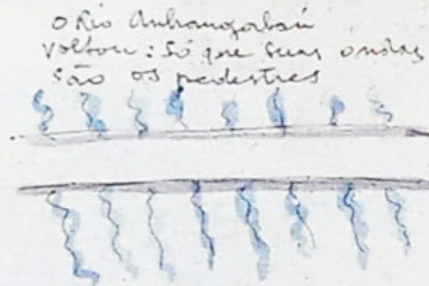 O Rio Anhangabaú
voltou: só que suas ondas
são os pedestres